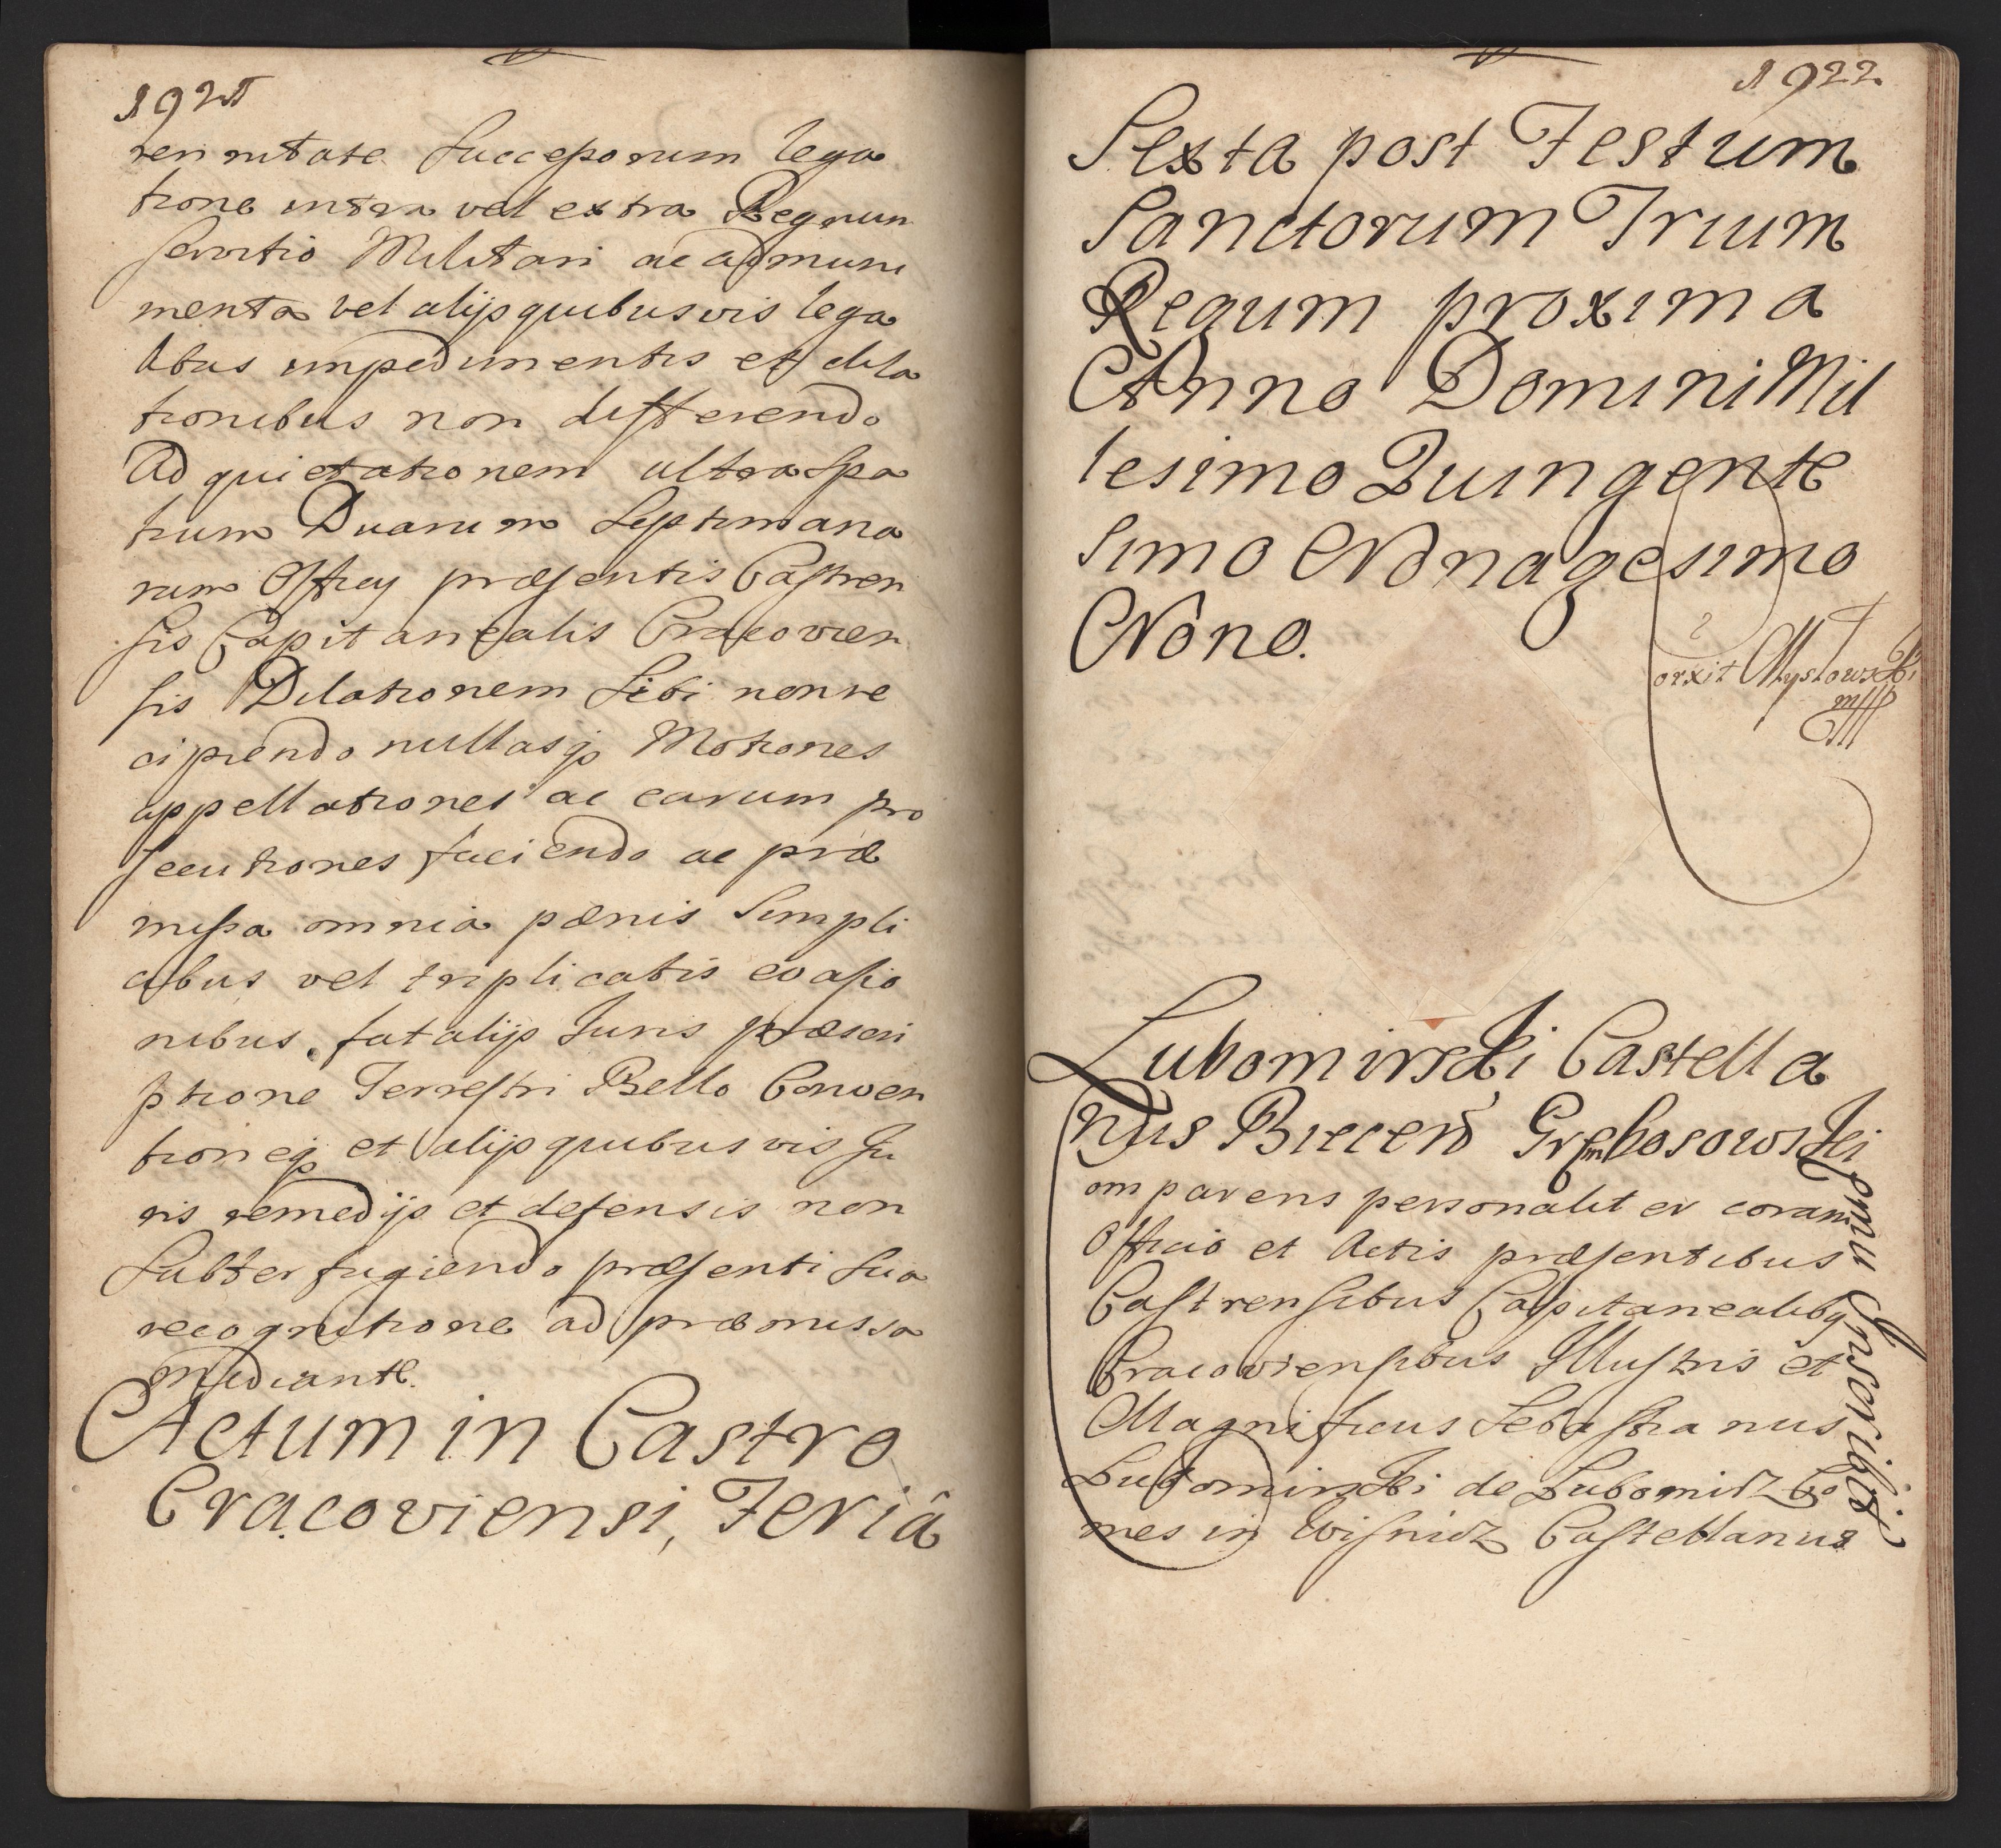 1921
ren mitate Successorum lega
tione intra vel extra Regnum
servitio Militari ac admuni
menta vel alijs quibusvis lega
libus impedimentis et dila
tionibus non differendo
Ad quietationem ultra spa
tium Duarum Septimana
rum Officij præsentis Castren
sis Capitanealis Cracovien
sis Dilationem Sibi non re
cipiendo nullasq; Motiones
appellationes ac earum pro
secutiones faciendo ac præ
missa omnia pænis Simpli
cibus vel triplicatis evasio
nibus, fatalijs Juris præscri
ptione Terrestri Bello Conven
tioneq; et alijs quibusvis Ju
ris remedijs et defensis non
Subterfugiendo præsenti sua
recognitione ad præmissa
mediante.
Actum in Castro
Cracoviensi, Feriâ
1922
Sexta post Festum
Sanctorum Trium
Regum proxima
Anno Domini Mil
lesimo Quingente
simo Nonagesimo
Nono.
orxit Mysłowski
mpp
Lubomirski Castella
nus Biecen Grębosowski
omparens personaliter coram
Officio et Actis præsentibus
Castrensibus Capitanealibq
Cracoviensibus Illustris et
Magnificus Sebastianus
Lubomirski de Lubomirz Co
mes in Wisnicz Castellanus
Inscribit